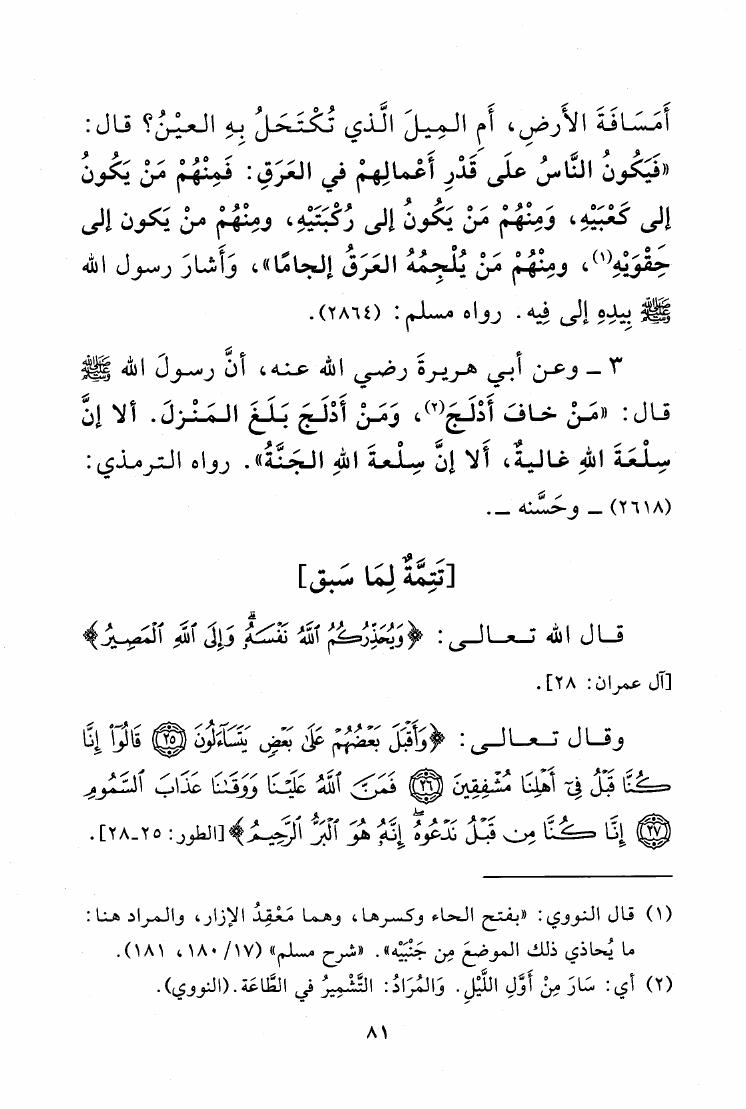 أَمَسَافَةَ الأَرضِ، أَمِ المِيلَ الَّذي تُكْتَحَلُ بِهِ العيْنُ؟ قال:
«فَيَكُونُ النَّاسُ على قَدْرِ أَعْمالِهِمْ في العَرَقِ: فَمِنْهُمْ مَنْ يَكُونُ
إلى كَعْبَيْهِ، وَمِنْهُمْ مَنْ يَكُونُ إلى رُكْبَتَيْهِ، ومِنْهُمْ منْ يَكون إلى
حِقْوَيْهِ(١)، ومِنْهُمْ مَنْ يُلْجِمُهُ العَرَقُ إلجامًا»، وَأَشارَ رسول الله
ﷺ بِيدِهِ إلى فِيه. رواه مسلم: (٢٨٦٤).
٣ ـ وعن أبي هريرةَ رضي الله عنه، أنَّ رسولَ الله ﷺ
قال: «مَنْ خافَ أَدْلَجَ(٢)، وَمَنْ أَدْلَجَ بَلَغَ المَنْزلَ. ألا إنَّ
سِلْعَةَ اللهِ غاليةٌ، أَلا إنَّ سِلْعةَ اللهِ الجَنَّةُ». رواه الترمذي:
(٢٦١٨) ـ وحَسَّنه ـ.
[تَتِمَّةٌ لِمَا سَبق]
قال الله تعالى: ﴿وَيُحَذِّرُكُمُ ٱللَّهُ نَفْسَهُۥۗ وَإِلَى ٱللَّهِ ٱلْمَصِيرُ﴾
[آل عمران: ٢٨].
وقال تعالى: ﴿وَأَقْبَلَ بَعْضُهُمْ عَلَىٰ بَعْضٍ يَتَسَآءَلُونَ ۝٢٥ قَالُوٓا۟ إِنَّا
كُنَّا قَبْلُ فِىٓ أَهْلِنَا مُشْفِقِينَ ۝٢٦ فَمَنَّ ٱللَّهُ عَلَيْنَا وَوَقَىٰنَا عَذَابَ ٱلسَّمُومِ
۝٢٧ إِنَّا كُنَّا مِن قَبْلُ نَدْعُوهُۖ إِنَّهُۥ هُوَ ٱلْبَرُّ ٱلرَّحِيمُ﴾ [الطور: ٢٥ـ٢٨].
(١) قال النووي: «بفتح الحاء وكسرها، وهما مَعْقِدُ الإزار، والمراد هنا:
ما يُحاذي ذلك الموضعَ مِن جَنْبَيْه». «شرح مسلم» (١٧/ ١٨٠، ١٨١).
(٢) أي: سَارَ مِنْ أَوَّلِ اللَّيْلِ. وَالمُرَادُ: التَّشْمِيرُ في الطَّاعَة.(النووي).
٨١